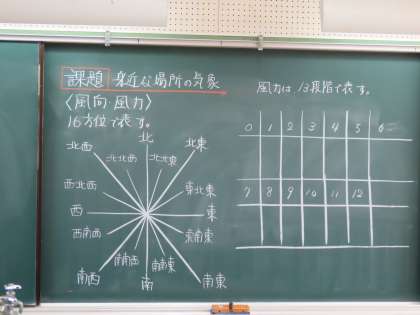 課題 身近な場所の気象
〈風向・風力〉
16方位で表す。
北
北西 北東
北北西 北北東
西北西 東北東
西 東
西南西 東南東
南南西 南南東
南西 南 南東
風力は、13段階で表す。
0 1 2 3 4 5 6
7 8 9 10 11 12